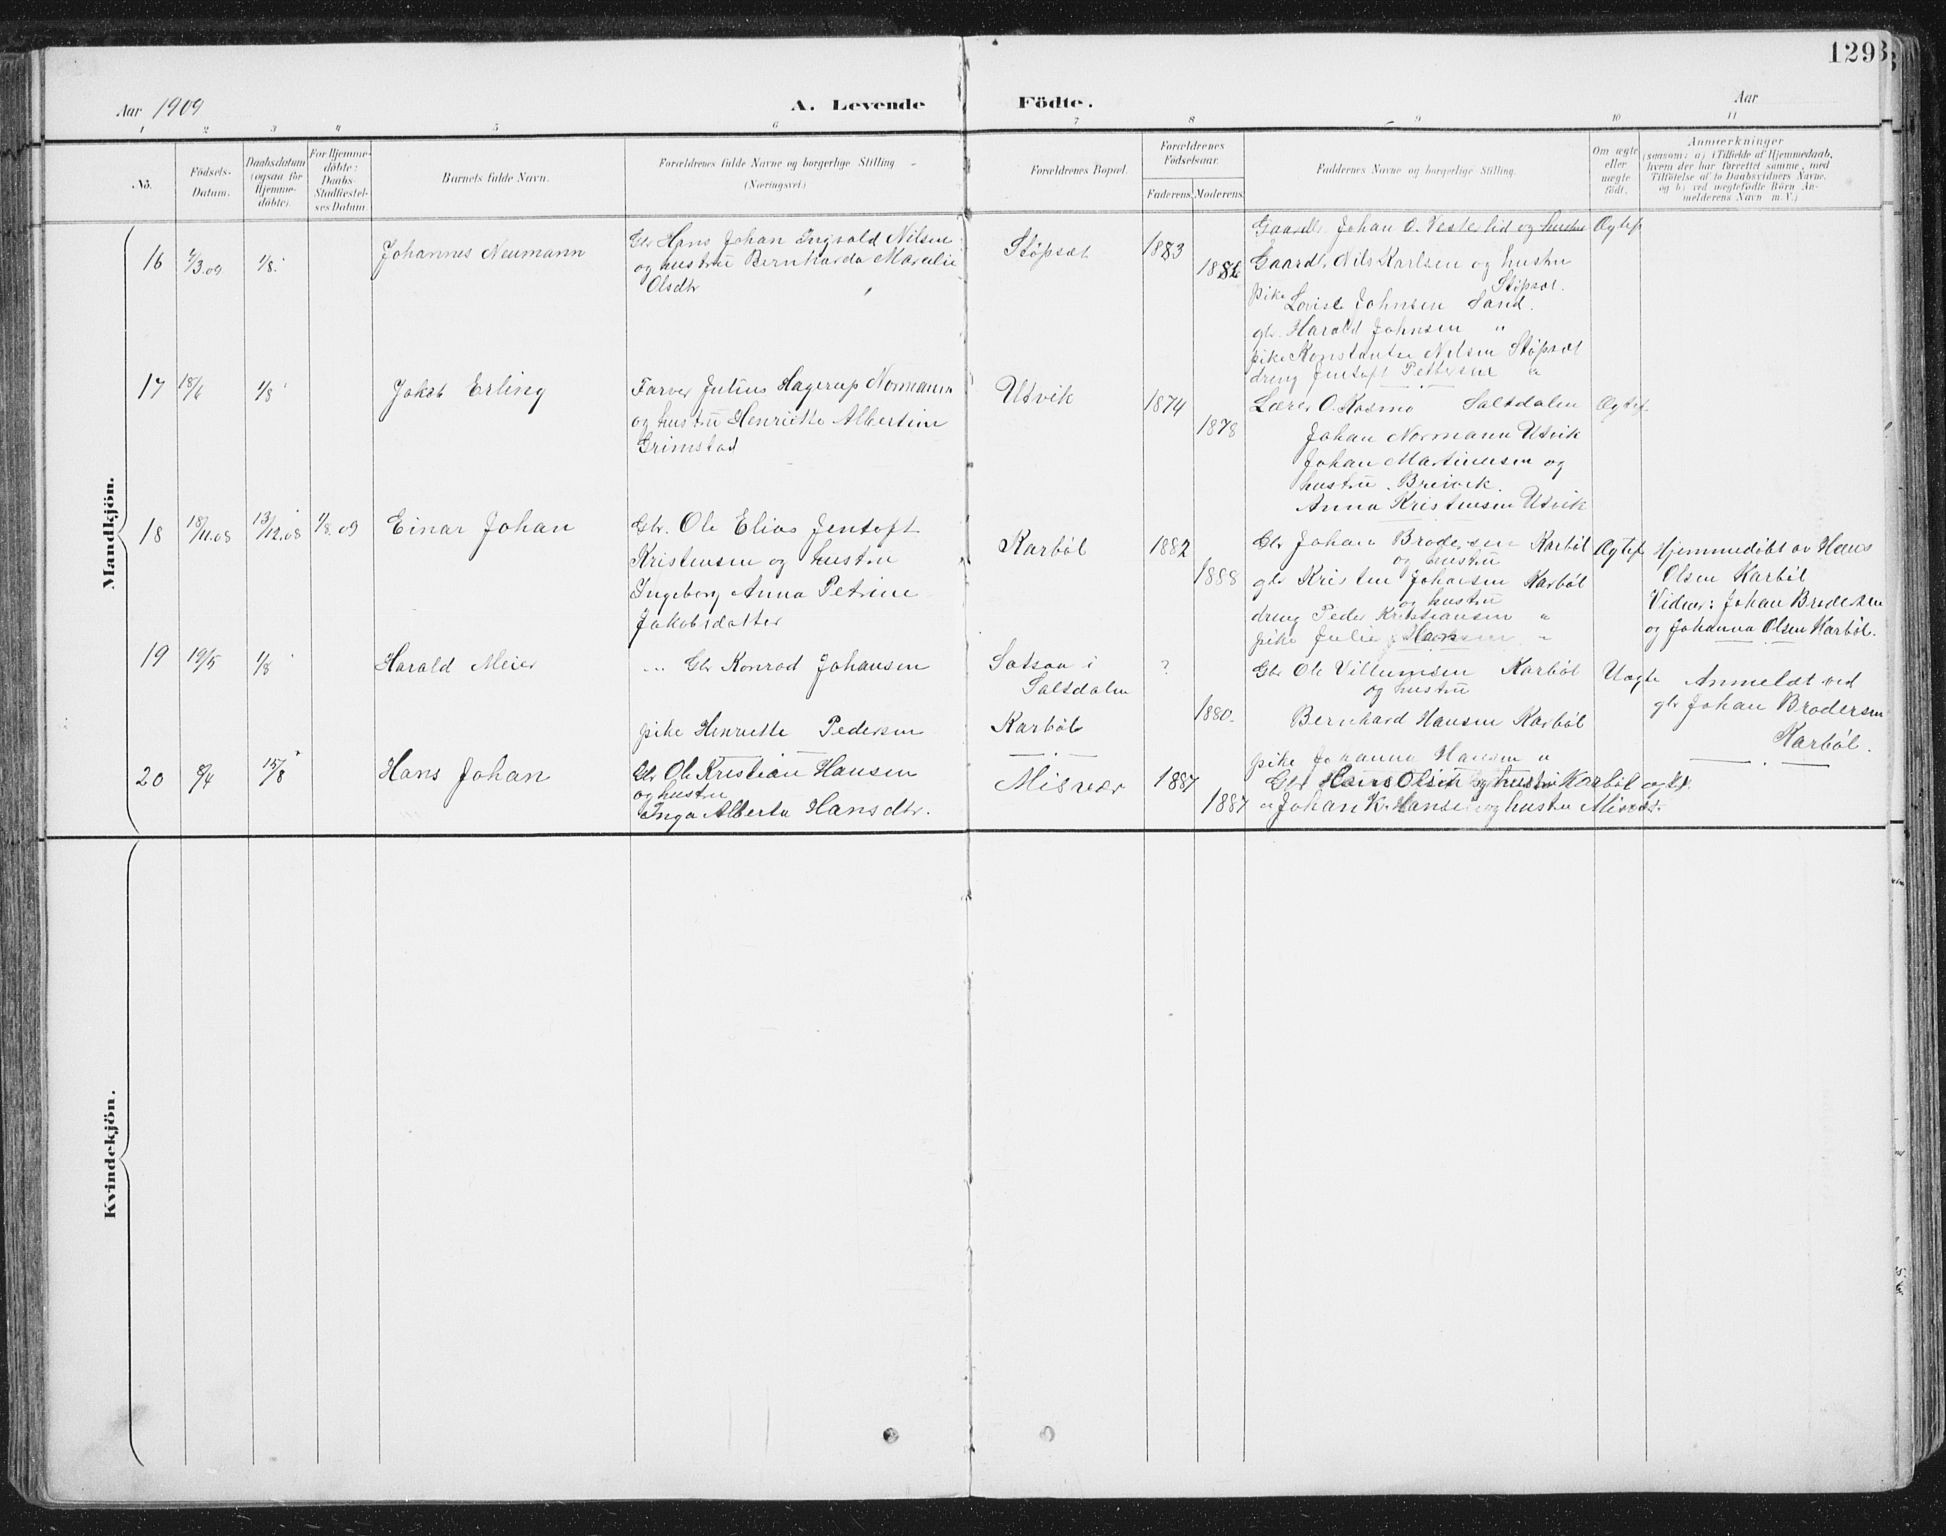 129
Aar 1909
A. Levende
Födte.
Aar
1 2 3 4 5 6 7 8 9 10 11
No.
Födsels-
Datum.
Daabsdatum
(ogsaa for
Hjemme-
döbte).
For Hjemme-
döbte:
Daabs-
Stadfæstel-
ses Datum.
Barnets fulde Navn.
Forældrenes fulde Navne og borgerlige Stilling
(Næringsvei)
Forældrenes Bopæl.
Forældrenes
Födselsaar.
Faderens.
Moderens.
Faddernes Navne og borgerlige Stilling.
Om ægte
eller
uægte
födt.
Anmærkninger
(saasom: a) i Tilfælde af Hjemmedaab,
hvem der har forrettet samme, med
Tilföielse af to Daabsvidners Navne,
og b) ved uægtefödte Börn An-
melderens Navn m. V.)
Mandkjön.
16
/3.09
1/8.
Johannes Neumann
Gbr Hans Johan Ingvald Nilsen
og hustru Bernharda
Olsdtr
Støpsæt
1883
Gaardbr. Johan O. Vesterlid og hustru
Gaardbr. Nils Karlsen og hustru
Støpsæt.
pike Lovise Johnsen Sand.
gbr. Harald Johnsen "
pike Konstanse Nilsen Støpsæt
dreng Jentoft Pettersen "
Ægtef
17
18/6
1/8
Jakob Erling
Farver Julius Hagerup Normann
og hustru Henrikke Albertine
Grimstad
Utvik
1874
1878
Lærer O. Kosmo Saltdalen
Johan Normann Utvik
Johan Martinusen og
hustru. Breivik.
Anna Kristensen Utvik
Ægtef.
18
18/11.08
13/12.08
1/8.09
Einar Johan
Gbr. Ole Elias Jentoft
Kristensen og hustru
Ingeborg Anna Petrine
Jakobsdatter
Karbøl
1882
1888
Gbr Johan Brodersen Karbøl
og hustru
gbr Kristen Johansen Karbøl
og hustru
dreng Peder Kristiansen "
pike Julie Hansen "
Ægtef
Hjemmedøbt av Hans
Olsen Karbøl
Vidner: Johan Brodersen
og Johanna Olsen Karbøl.
19
19/5
1/8
Harald Meier
Gbr Konrad Johansen
pike Henriette Pedersen
Saltdalen
Karbøl
?
1880.
Gbr Ole Villumsen Karbøl
og hustru
Bernhard Hansen Karbøl
pike Johanna Hansen "
Uægte
Anmeldt ved
gbr Johan Brodersen
Karbøl.
20
/4
15/8
Hans Johan
Gbr Ole Kristian Hansen
og hustru
Inga Alberta Hansdtr.
Misvær
1887
1887
Gbr Hans Olsen og hustru Karbøl
" Johan K. Hansen og hustru Misvær
Kvindekjön.